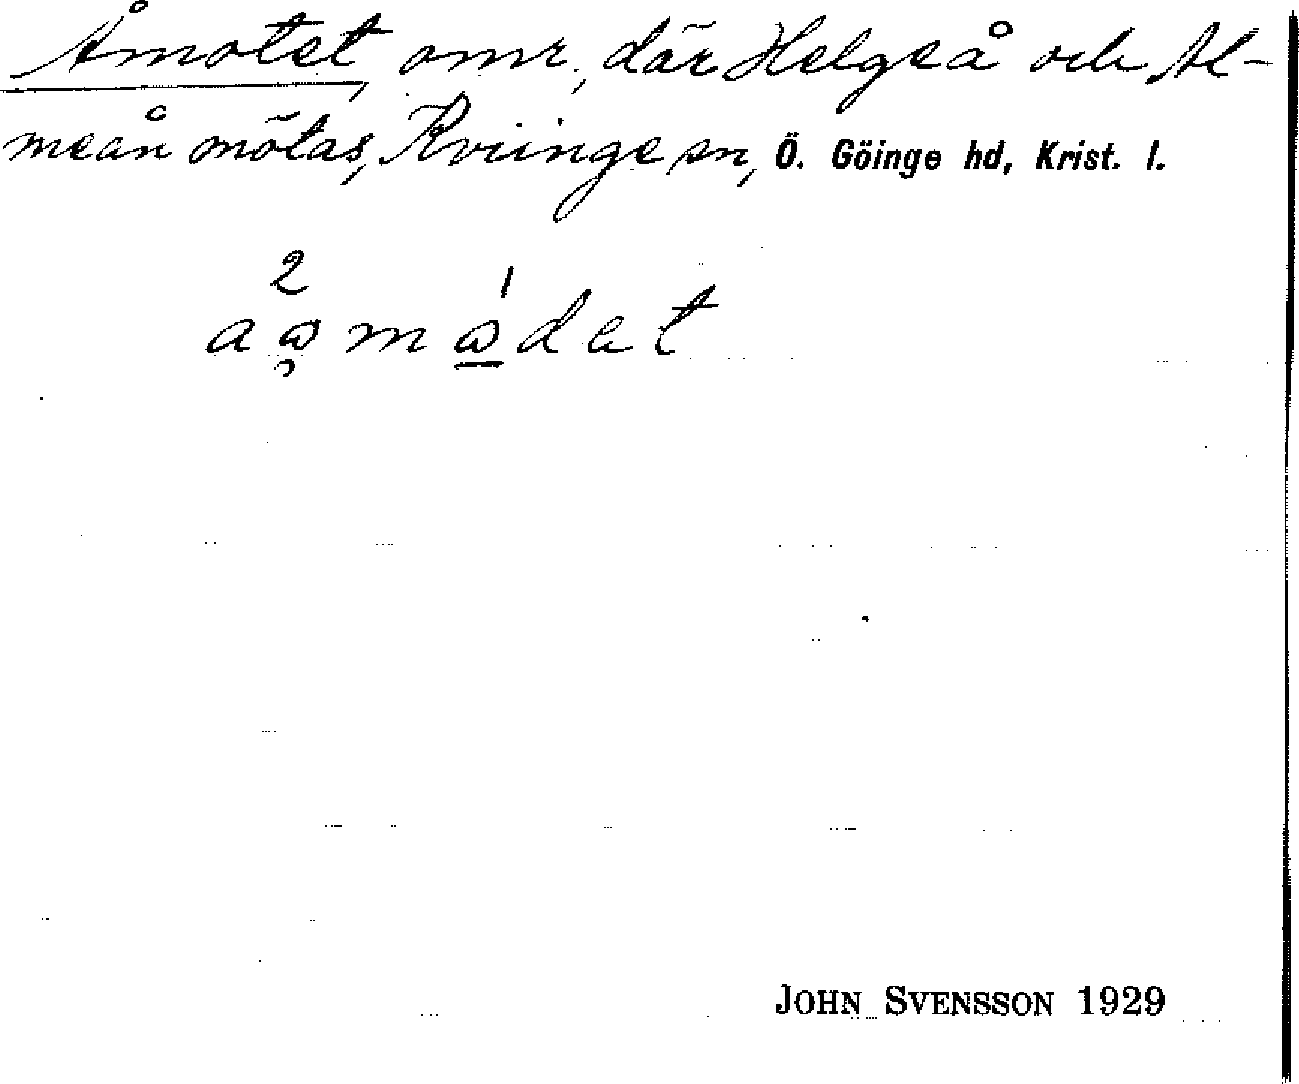 Åmotet, omr., där Helgeå och Al-
meån mötas, Kviinge sn, Ö. Göinge hd, Krist. l.
2 1
JOHN SVENSSON 1929